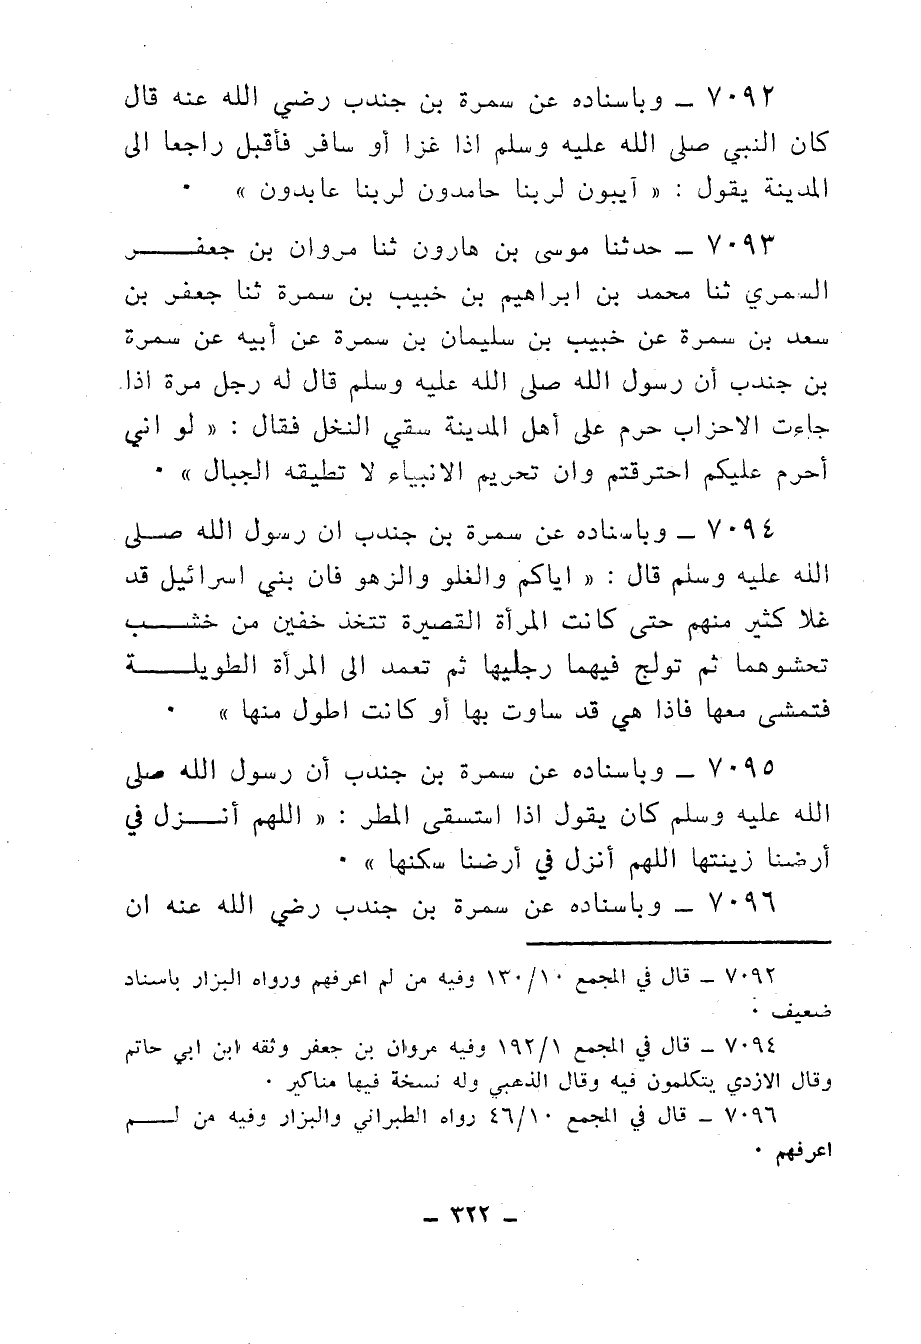 ٧٠٩٢ ــ وباسناده عن سمرة بن جندب رضي الله عنه قال
كان النبي صلى الله عليه وسلم اذا غزا أو سافر فأقبل راجعا الى
المدينة يقول : « آيبون لربنا حامدون لربنا عابدون » ٠
٧٠٩٣ ــ حدثنا موسى بن هارون ثنا مروان بن جعفـــــر
السمري ثنا محمد بن ابراهيم بن خبيب بن سمرة ثنا جعفر بن
سعد بن سمرة عن خبيب بن سليمان بن سمرة عن أبيه عن سمرة
بن جندب أن رسول الله صلى الله عليه وسلم قال له رجل مرة اذا
جاءت الاحزاب حرم على أهل المدينة سقي النخل فقال : « لو اني
أحرم عليكم احترقتم وان تحريم الانبياء لا تطيقه الجبال » ٠
٧٠٩٤ ــ وباسناده عن سمرة بن جندب ان رسول الله صــلى
الله عليه وسلم قال : « اياكم والغلو والزهو فان بني اسرائيل قد
غلا كثير منهم حتى كانت المرأة القصيرة تتخذ خفين من خشــــب
تحشوهما ثم تولج فيهما رجليها ثم تعمد الى المرأة الطويلـــــة
فتمشى معها فاذا هي قد ساوت بها أو كانت اطول منها » ٠
٧٠٩٥ ــ وباسناده عن سمرة بن جندب أن رسول الله صلى
الله عليه وسلم كان يقول اذا استسقى المطر : « اللهم أنــــزل في
أرضنا زينتها اللهم أنزل في أرضنا سكنها » ٠
٧٠٩٦ ــ وباسناده عن سمرة بن جندب رضي الله عنه ان
٧٠٩٢ ــ قال في المجمع ١٣٠/١٠ وفيه من لم اعرفهم ورواه البزار باسناد
ضعيف ٠
٧٠٩٤ ــ قال في المجمع ١٩٢/١ وفيه مروان بن جعفر وثقه ابن ابي حاتم
وقال الازدي يتكلمون فيه وقال الذهبي وله نسخة فيها مناكير ٠
٧٠٩٦ ــ قال في المجمع ٤٦/١٠ رواه الطبراني والبزار وفيه من لـــم
اعرفهم ٠
ــ ٣٢٢ ــ